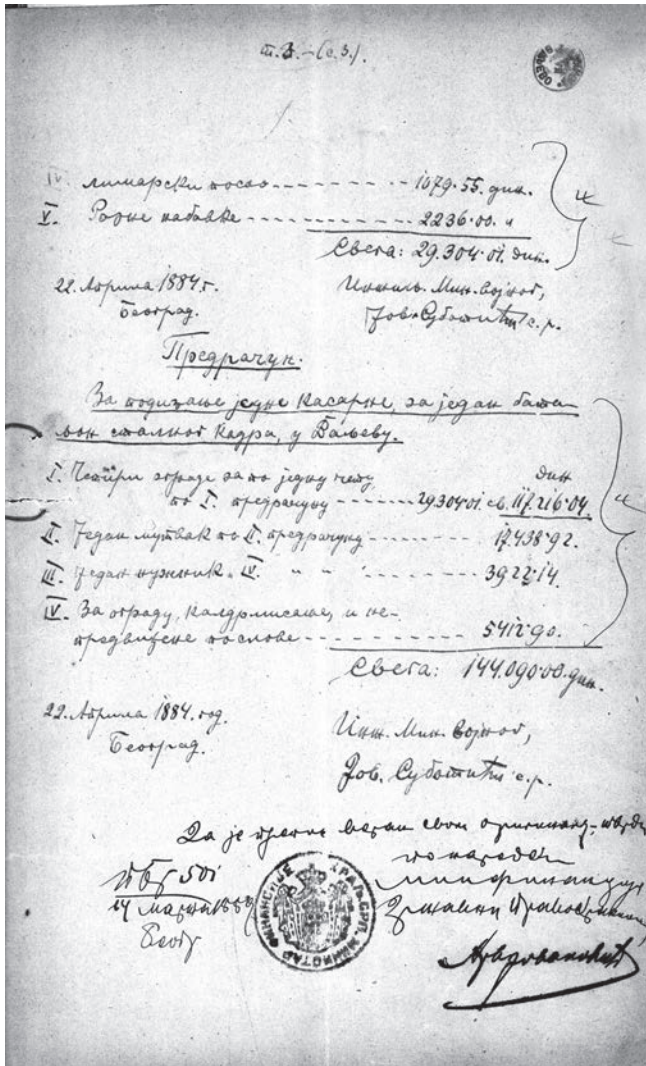 IV. лимарски посао - - - - - - - - 1079·55. дин.
V. Разне набавке - - - - - - - - - 2236·00. "
Свега: 29.304·01. дин.
22. Априла 1884. г.
Београд.
Инжињ. Мин. војног,
Јов. Суботић с. р.
Предрачун.
За подизање једне касарне, за један бата-
љон сталног кадра, у Ваљеву.
дин
I. Четири зграде за по једну чету
по I. предрачуну - - - - - - 29304·01. св. 117.216·04.
II. Један мутвак по II. предрачуну - - - - - 17.438·92.
III. Један нужник " IV. " " - - - - - 3922·14.
IV. За ограду, калдрмисање, и не-
предвиђене послове - - - - - - - - 5412·90.
Свега: 144.090·00. дин.
22. Априла 1884. год.
Београд.
Инж. Мин. војног,
Јов. Суботић с. р.
Да је препис веран свом оригиналу, тврди
по наредби
мин. финансије
ПБр 501
14 марта 188
Беогр
КРАЉ. СРП. МИНИСТАР ФИНАНСИЈЕ